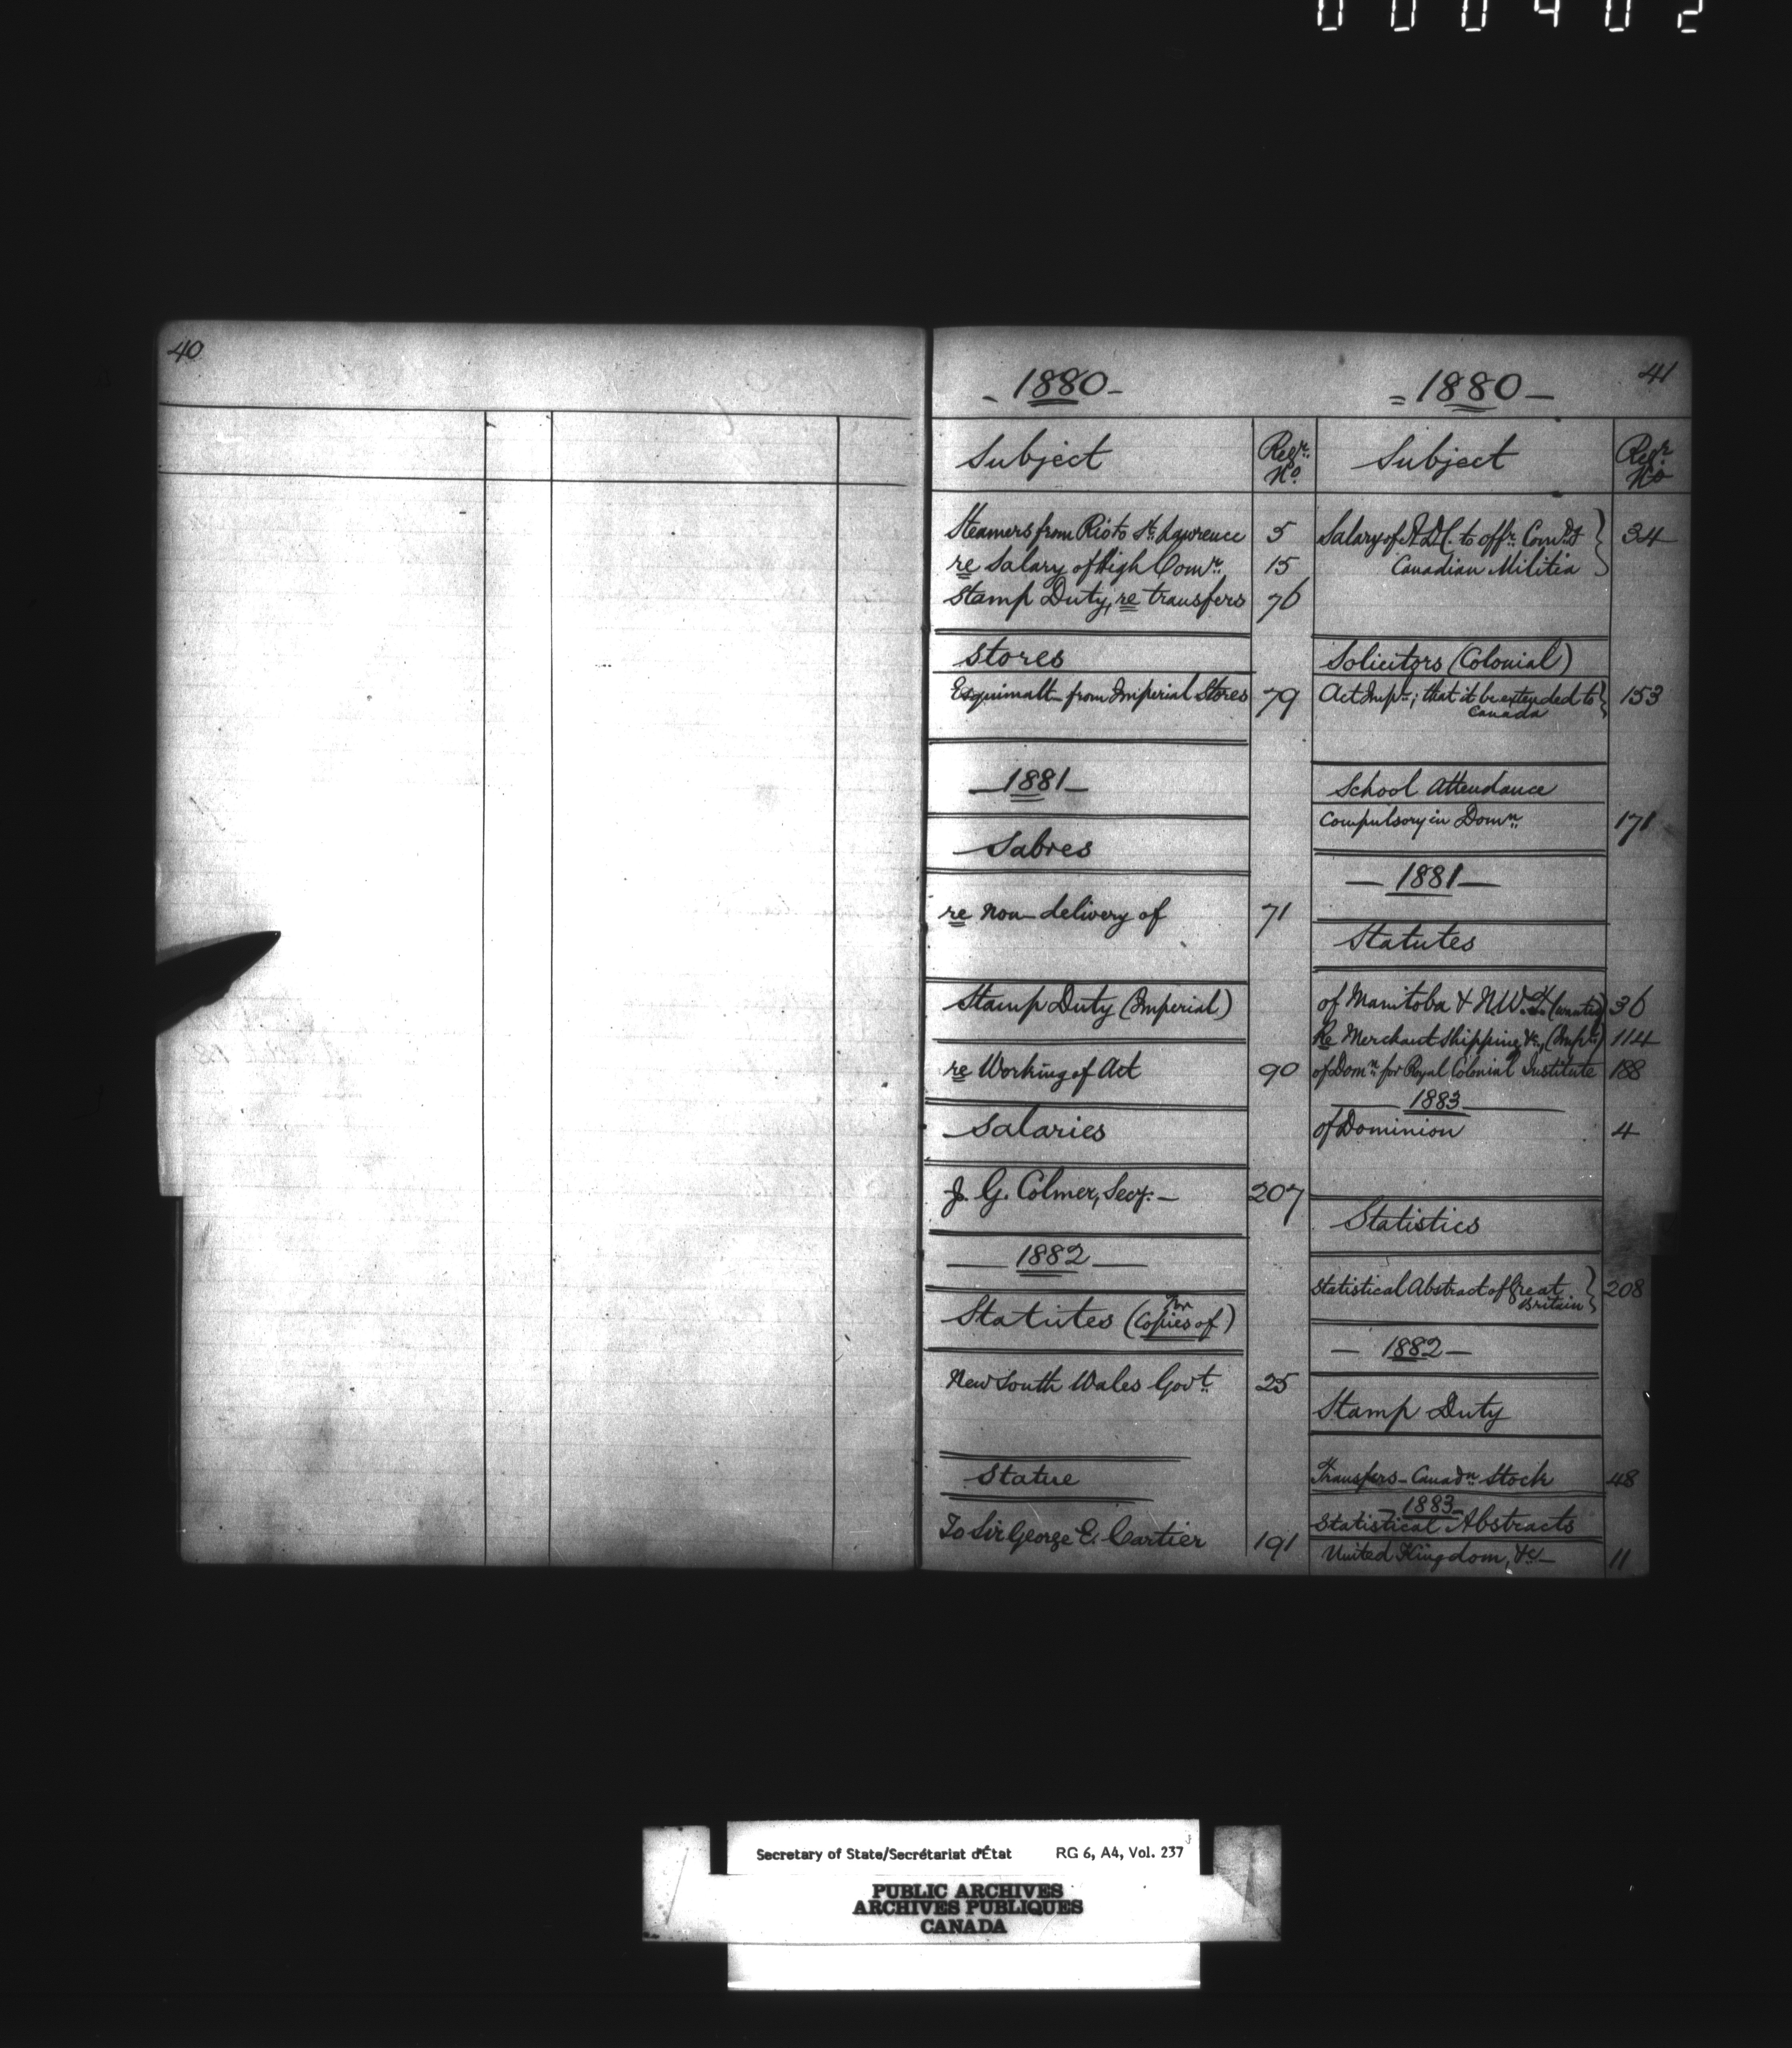 000402
40
41
- 1880 -
Subject
Regr. No.
Steamers from Rio to St. Lawrence 5
re Salary of High Comr. 15
Stamp Duty, re transfers 76
Stores
Esquimalt - from Imperial Stores 79
- 1881 -
Sabres
re non-delivery of 71
Stamp Duty (Imperial)
re Working of Act 90
Salaries
J. G. Colmer, Secy. - 207
- 1882 -
Statutes (for Copies of)
New South Wales Govt. 25
Statue
To Sir George E. Cartier 191
= 1880 -
Subject
Regr. No.
Salary of A.D.C. to offr. Comdg } 34
Canadian Militia
Solicitors (Colonial)
Act Impl.; that it be extended to } 153
Canada
School Attendance
Compulsory in Domn. 171
- 1881 -
Statutes
of Manitoba & N.W.T. (wanted) 36
Re Merchant Shipping &c., (Impl.) 114
of Domn. for Royal Colonial Institute 188
- 1883 -
of Dominion 4
Statistics
Statistical Abstract of Great } 208
Britain
- 1882 -
Stamp Duty
Transfers - Canadn. Stock 48
- 1883 -
Statistical Abstracts
United Kingdom, &c - 11
Secretary of State/Secrétariat d'État RG 6, A4, Vol. 237
PUBLIC ARCHIVES
ARCHIVES PUBLIQUES
CANADA